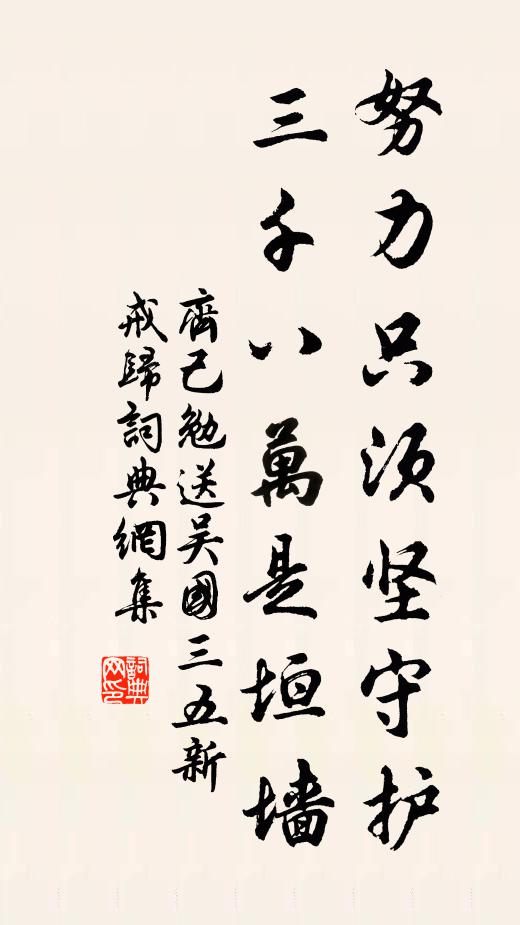 努力只须坚守护
三千八萬是垣墙
齊己勉送吴國三五新
戒歸詞典網集
詞典网印